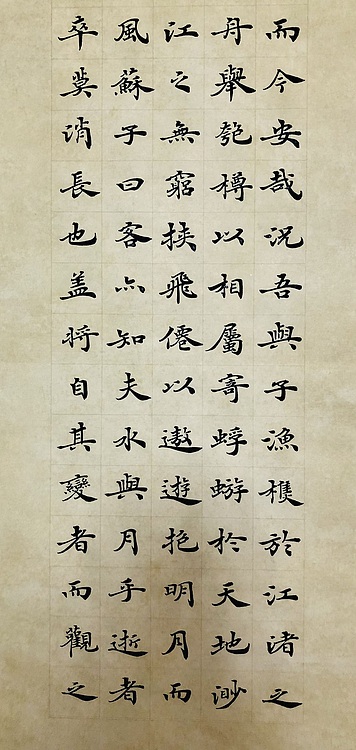 而今安哉況吾與子漁樵於江渚之
舟舉匏樽以相屬寄蜉蝣於天地渺
江之無窮挾飛僊以遨遊抱明月而
風蘇子曰客亦知夫水與月乎逝者
卒莫消長也盖將自其變者而觀之